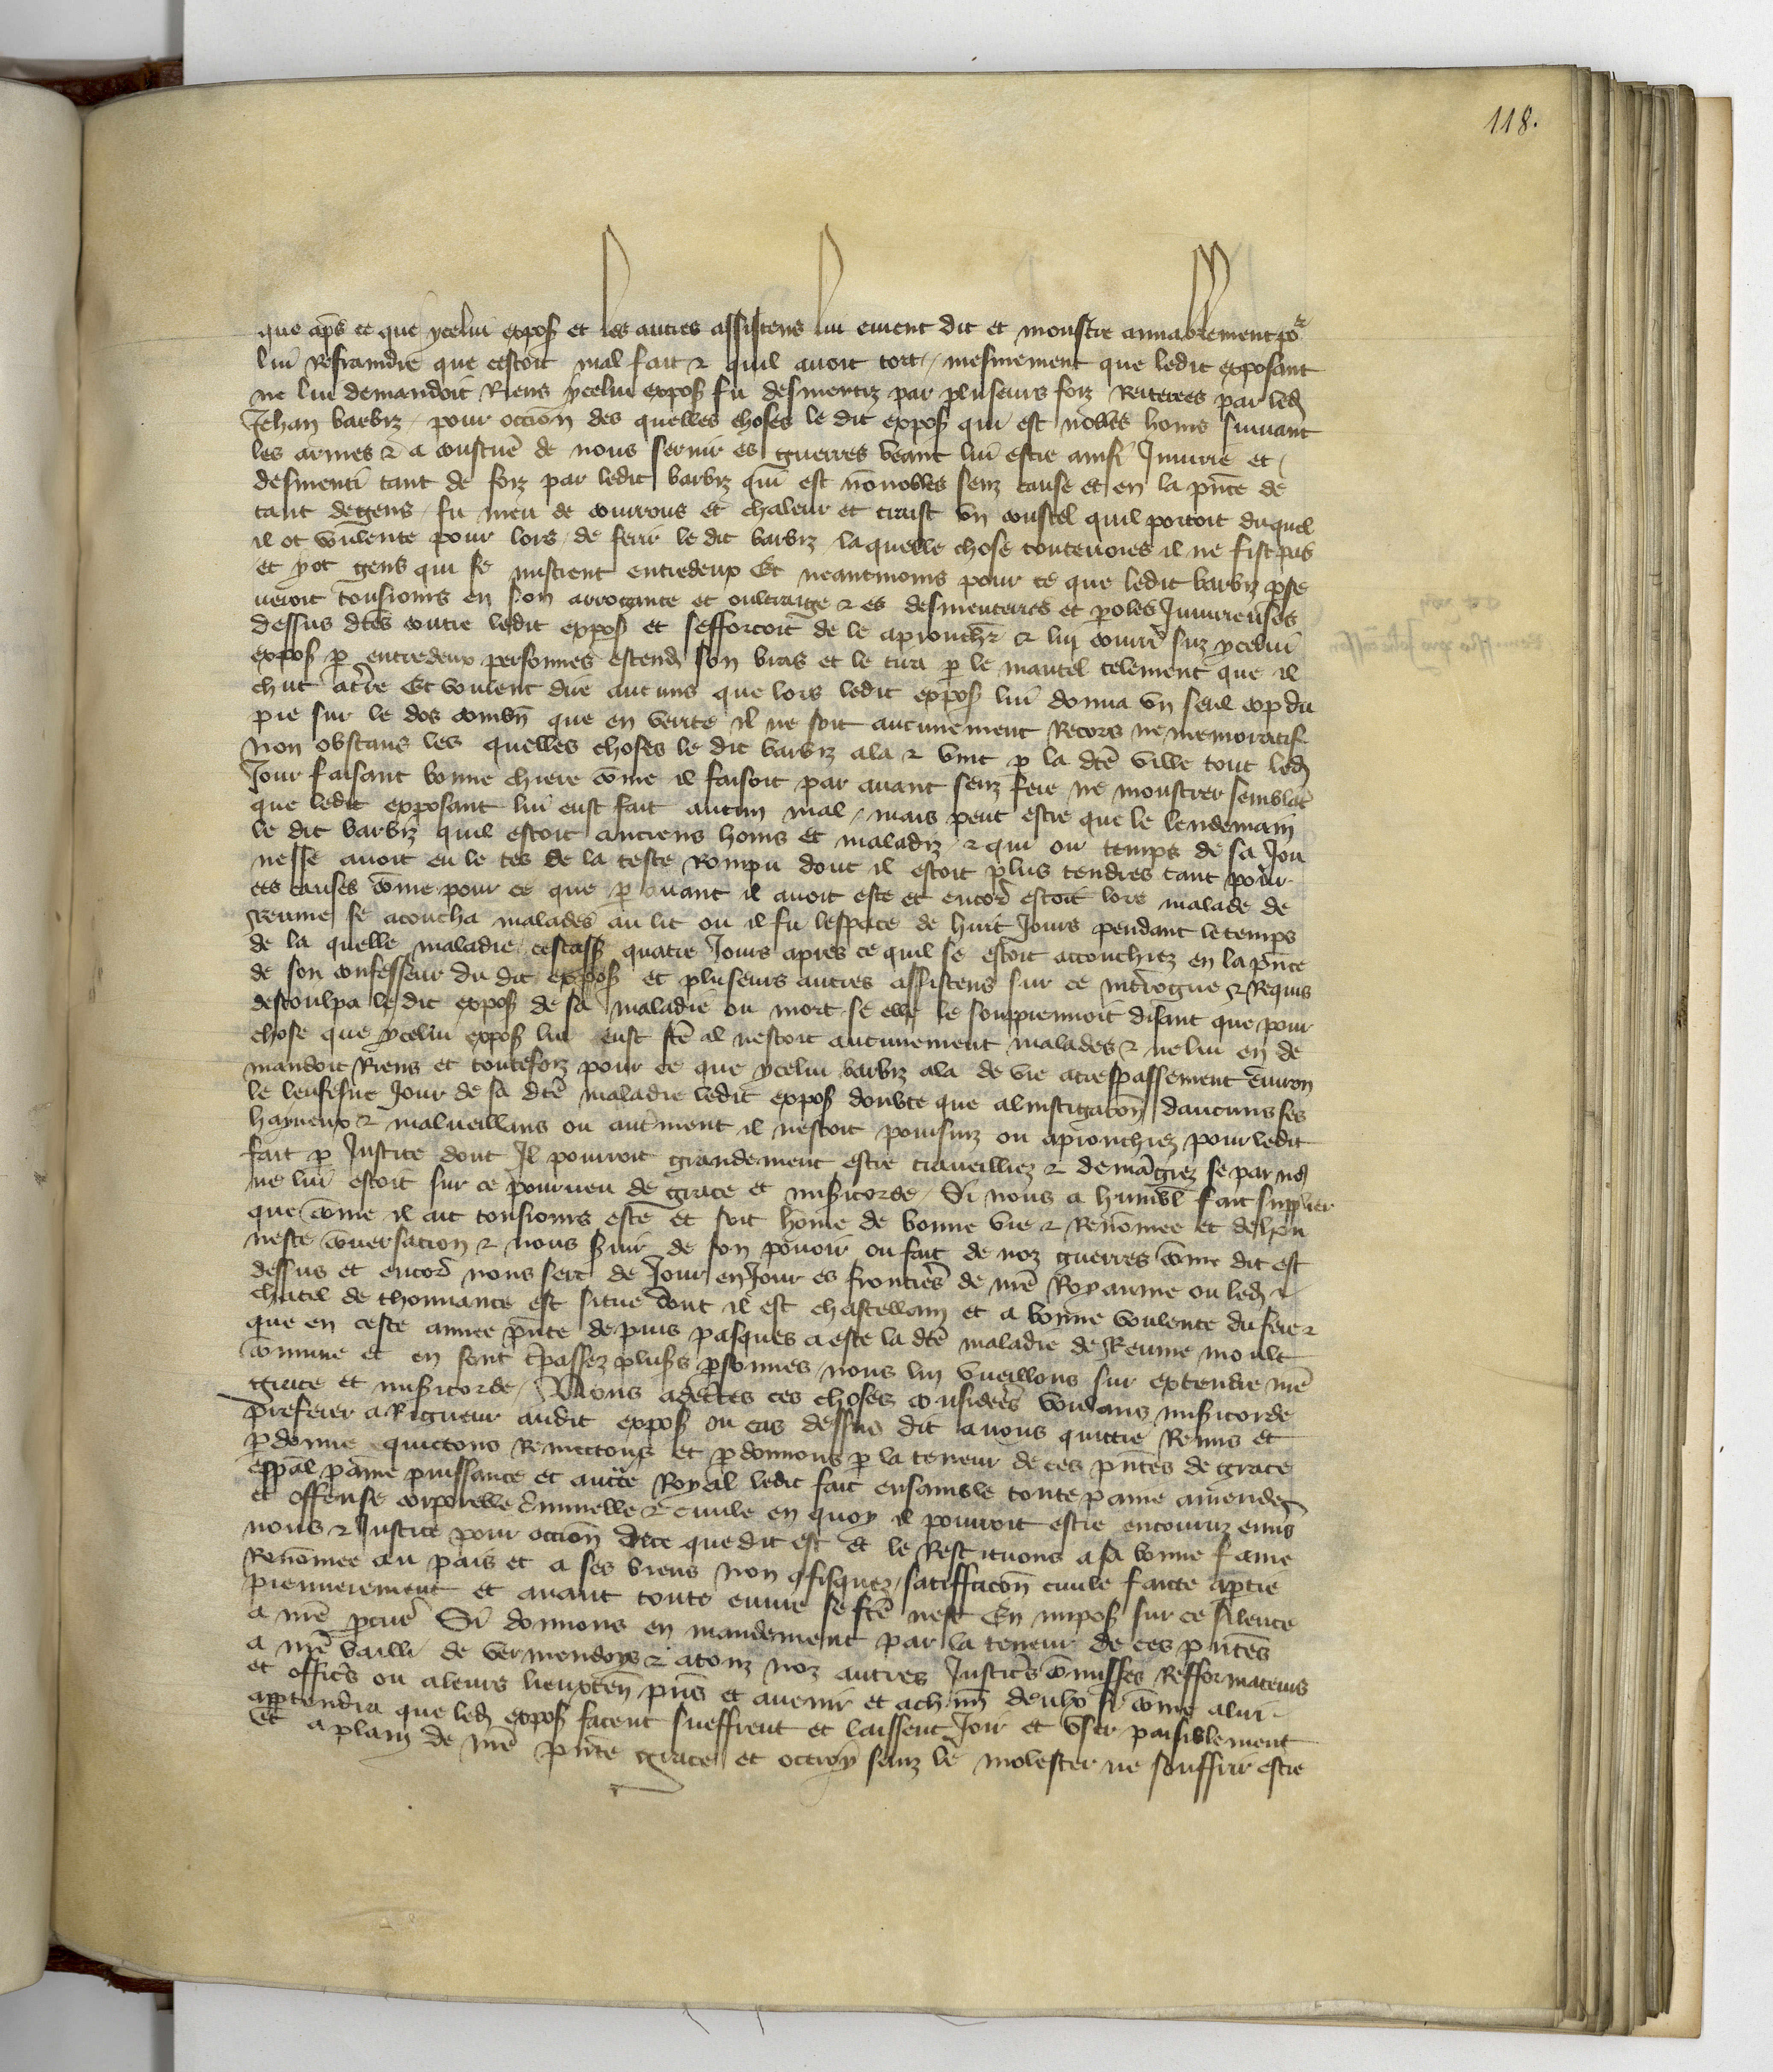 118.
que apres ce que ycelui expos et les autres assistens lui eurent dit et monstre amiablement por
lui refraindre que cestoit mal fait & quil avoit tort, mesmement que ledit exposant
ne lui demandoit Riens ycelui expos fu desmentiz par pluseurs foiz Reiterees par led
Jehan barbiz, pour occion des quelles choses le dit expos qui est nobles homs suivant
les armes & a coustume de nous servir es guerres veant lui estre ainsi Iniurie et
desmenti tant de foiz par ledit barbiz qui est nonnobles senz cause et en la pnce de
tant de gens, fu meu de courrous et chaleur et traist un coustel quil portoit duquel
il ot voulente pour lors de ferir le dit barbiz, laquelle chose toutevoies il ne fist pas
et y ot gens qui se mistrent entredeux Et neantmoins pour ce que ledit barbiz perse
veroit tousiours en son arrogance et oultraige & es desmenteries et paroles Iniurieuses
dessus dtes contre ledit expos et sefforcoit de le aprouchr & lui courre suz ycelui
expos p entredeux personnes estend son bras et le tira p le mantel telement que il
chut a terre Et veulent dire aucuns que lors ledit expos lui donna un seul cop du
pie sur le dos combn que en verite il ne soit aucunement Recors ne memoratif
Non obstans les quelles choses le dit barbiz ala & vint p la dte ville tout led
Jour faisant bonne chiere come il faisoit par avant senz feire ne monstrer semblat
que ledit exposant lui eust fait aucun mal, mais peut estre que le lendemain
le dit barbiz quil estoit anciens homs et maladiz & qui ou temps de sa Jou
nesse avoit eu le tes de la teste rompu dont il estoit plus tendres tant pour
ces causes come pour ce que p avant il avoit este et encor estoit lors malade de
Reume se acoucha malades au lit ou il fu lespace de huit Jours pendant le temps
de la quelle maladie cestass quatre Jours apres ce quil se estoit accouchiez en la pnce
de son confesseur du dit expos et pluseurs autres assistens sur ce interrogue & Requis
descoulpa le dit expos de sa maladie ou mort se elle le sourprennoit disant que pour
chose que ycelui expos lui eust fte il nestoit aucunement malades & ne lui en de
mandoit Riens et toutefoiz pour ce que ycelui barbiz ala de vie a trespassement environ
le leufisme Jour de sa dte maladie ledit expos doubte que a linstigacon daucuns ses
hayneux & malveillans ou autment il nestoit poursuiz ou aprouchiez pour ledit
fait p Justice dont Il pourroit grandement estre traveilliez & demagiez se par no
ne lui estoit sur ce pourveu de grace et misicorde, Si nous a humbl fait supplier
que come il ait tousiours este et soit home de bonne vie & Renomee et de hon
neste conversacion & nous servir de son povoir ou fait de noz guerres come dit est
dessus et encor nous sert de Jour en Jour es frontieres de nre Royaume ou led
chatel de thonnance est situe dont il est chastellain et a bonne voulente du feire &
que en ceste annee pnte depuis pasques a este la dte maladie de Reume moult
comune et en sont trpassez plusrs psonnes, nous lui vueillons sur extendre nre
grace et misicorde, Nous adcertes ces choses considerees voulans misicorde
preferer a Rigueur audit expos ou cas dessus dit avons quittie Remis et
pdonne quictons Remectons et pdonnons p la teneur de ces pntes de grace
espal plaine puissance et aucte Royal ledit fait ensamble toute paine amende
et offense corporelle criminelle & civile en quoy il pourroit estre encouruz envers
nous & Justice pour occion de ce que dit est Et le Restituons a sa bonne fame
Renomee au pais et a ses biens non confisquez, satisffacon civile faicte a ptie
premierement et avant toute euvre se fte nest En impos sur ce silence
a nre pcur Si donnons en mandement par la teneur de ces pntes
a nre bailli de vermendoys & a touz noz autres Justices comisses Refformateurs
et officrs ou a leurs lieuxten pns et avenir et a chun deulx si come a lui
appartendra que led expos facent sueffrent et laissent Joir et user paisiblement
et a plain de nre pnte grace et ottroy senz le molester ne souffrir estre